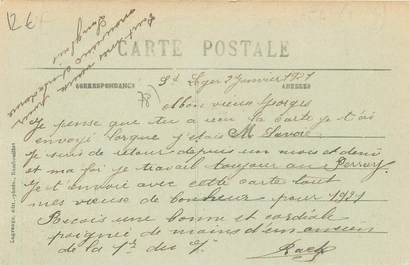 12€
CARTE POSTALE
CORRESPONDANCE
ADRESSE
St Leger 3 Janvier 1921
(78)
Mon vieux Georges
Je pense que tu a reçu la carte je t'ai
envoyé lorque j'étais M Savoie
je suis de retour depuis un mois et demi
et ma foi je travail toujour au Perray.
Je t'envoie avec cette carte tout
mes vieuse de bonheur pour 1921
Recois une bonne et cordiale
poignée de mains d'un ancien
de la 1re du